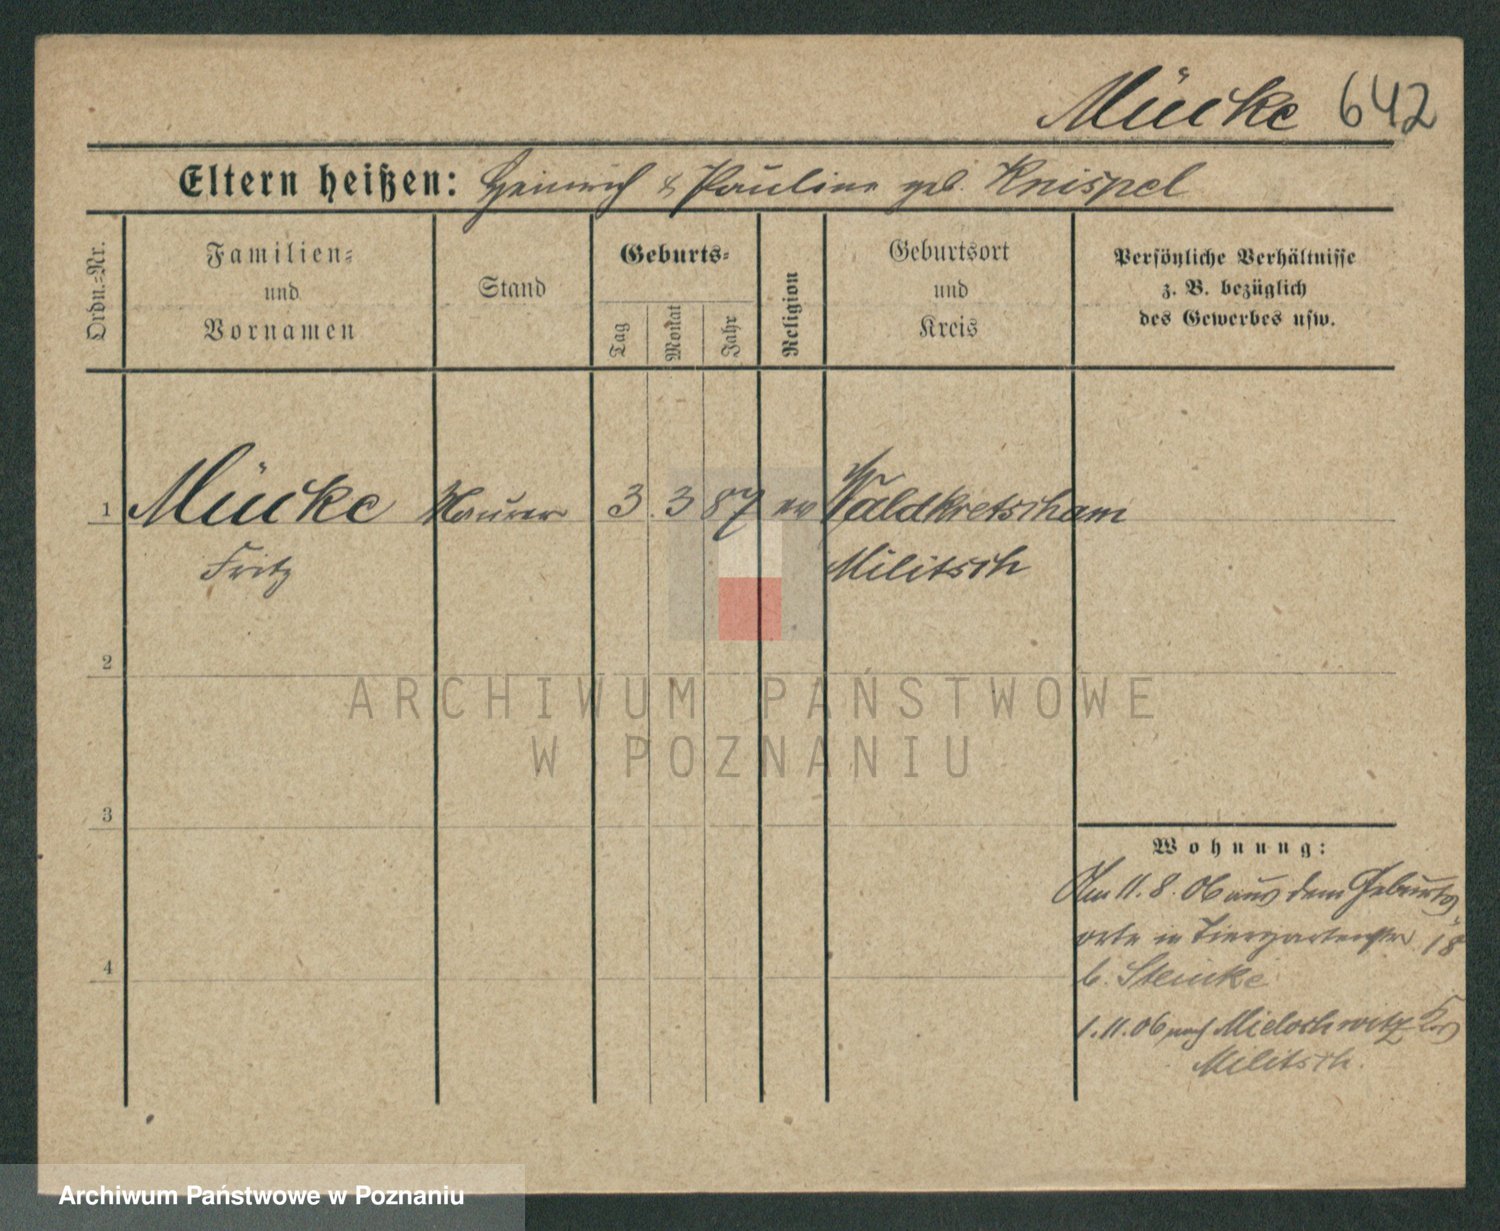 Mücke 642
Eltern heißen: Heinrich & Pauline geb. Knispel
Ordn.-Nr.
Familien-
und
Vornamen
Stand
Geburts-
Tag
Monat
Jahr
Religion
Geburtsort
und
Kreis
Persönliche Verhältnisse
z. B. bezüglich
des Gewerbes usw.
1 Mücke Maurer 3. 3 87 ev Waldkretscham
Fritz Militsch
2
ARCHIWUM PAŃSTWOWE
W POZNANIU
3
Wohnung:
Am 11. 8. 06 aus dem Geburts
orte in Tiergartenstr 18
4
b. Steinke
1. 11. 06 nach Mieloschwitz Krs
Militsch.
Archiwum Państwowe w Poznaniu